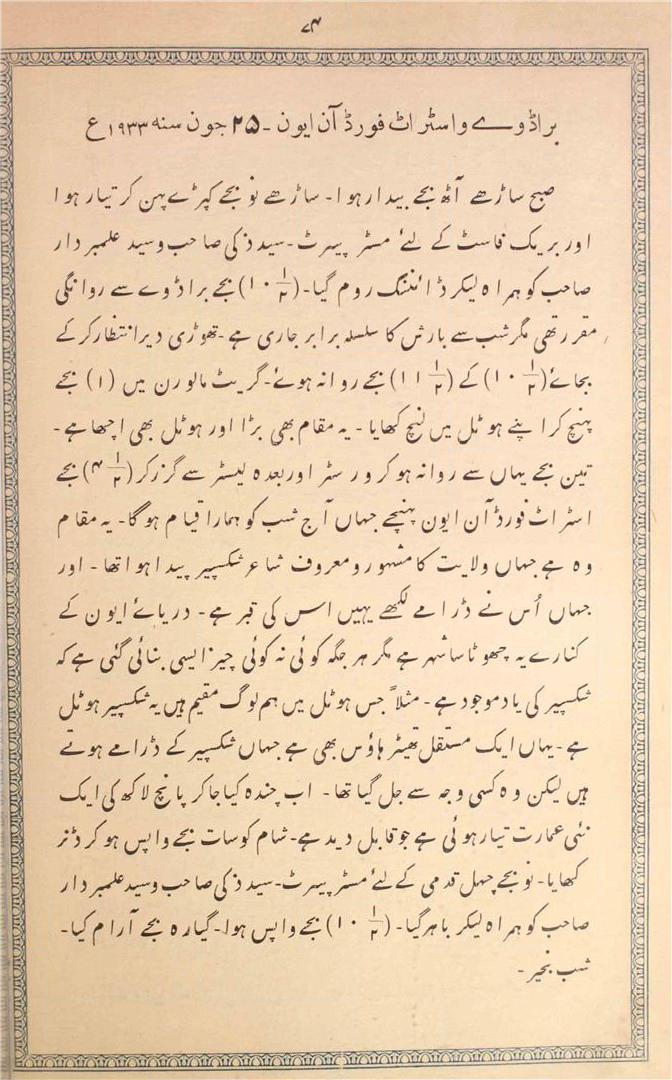 ۷۴
براڈوے و اسٹراٹ فورڈ آن ایون ۔ ۲۵ جون سنہ ۱۹۳۳ع
صبح ساڑھے آٹھ بجے بیدار ہوا۔ ساڑھے نو بجے کپڑے پہن کر تیار ہوا
اور بریک فاسٹ کے لئے مسٹر پیرٹ۔ سید ذکی صاحب و سید علمبردار
صاحب کو ہمراہ لیکر ڈائننگ روم گیا۔ (۱۰ ۱/۲) بجے براڈوے سے روانگی
مقرر تھی مگر شب سے بارش کا سلسلہ برابر جاری ہے۔ تھوڑی دیر انتظار کر کے
بجائے (۱۰ ۱/۲) کے (۱۱ ۱/۲) بجے روانہ ہوئے۔ گریٹ مالورن میں (۱) بجے
پہنچ کر اپنے ہوٹل میں لنچ کھایا ۔ یہ مقام بھی بڑا اور ہوٹل بھی اچھا ہے۔
تین بجے یہاں سے روانہ ہو کر ورسٹر اور بعدہ لیسٹر سے گزر کر (۴ ۱/۲) بجے
اسٹراٹ فورڈ آن ایون پہنچے جہاں آج شب کو ہمارا قیام ہو گا۔ یہ مقام
وہ ہے جہاں ولایت کا مشہور و معروف شاعر شکسپیر پیدا ہوا تھا ۔ اور
جہاں اُس نے ڈرامے لکھے یہیں اس کی قبر ہے۔ دریائے ایون کے
کنارے یہ چھوٹا سا شہر ہے مگر ہر جگہ کوئی نہ کوئی چیز ایسی بنائی گئی ہے کہ
شکسپیر کی یاد موجود ہے۔ مثلاً جس ہوٹل میں ہم لوگ مقیم ہیں یہ شکسپیر ہوٹل
ہے۔ یہاں ایک مستقل تھیٹر ہاؤس بھی ہے جہاں شکسپیر کے ڈرامے ہوتے
ہیں لیکن وہ کسی وجہ سے جل گیا تھا۔ اب چندہ کیا جا کر پانچ لاکھ کی ایک
نئی عمارت تیار ہوئی ہے جو قابل دید ہے۔ شام کو سات بجے واپس ہو کر ڈنر
کھایا۔ نو بجے چہل قدمی کے لئے مسٹر پیرٹ۔ سید ذکی صاحب و سید علمبردار
صاحب کو ہمراہ لیکر باہر گیا۔ (۱۰ ۱/۲) بجے واپس ہوا۔ گیارہ بجے آرام کیا۔
شب بخیر ۔